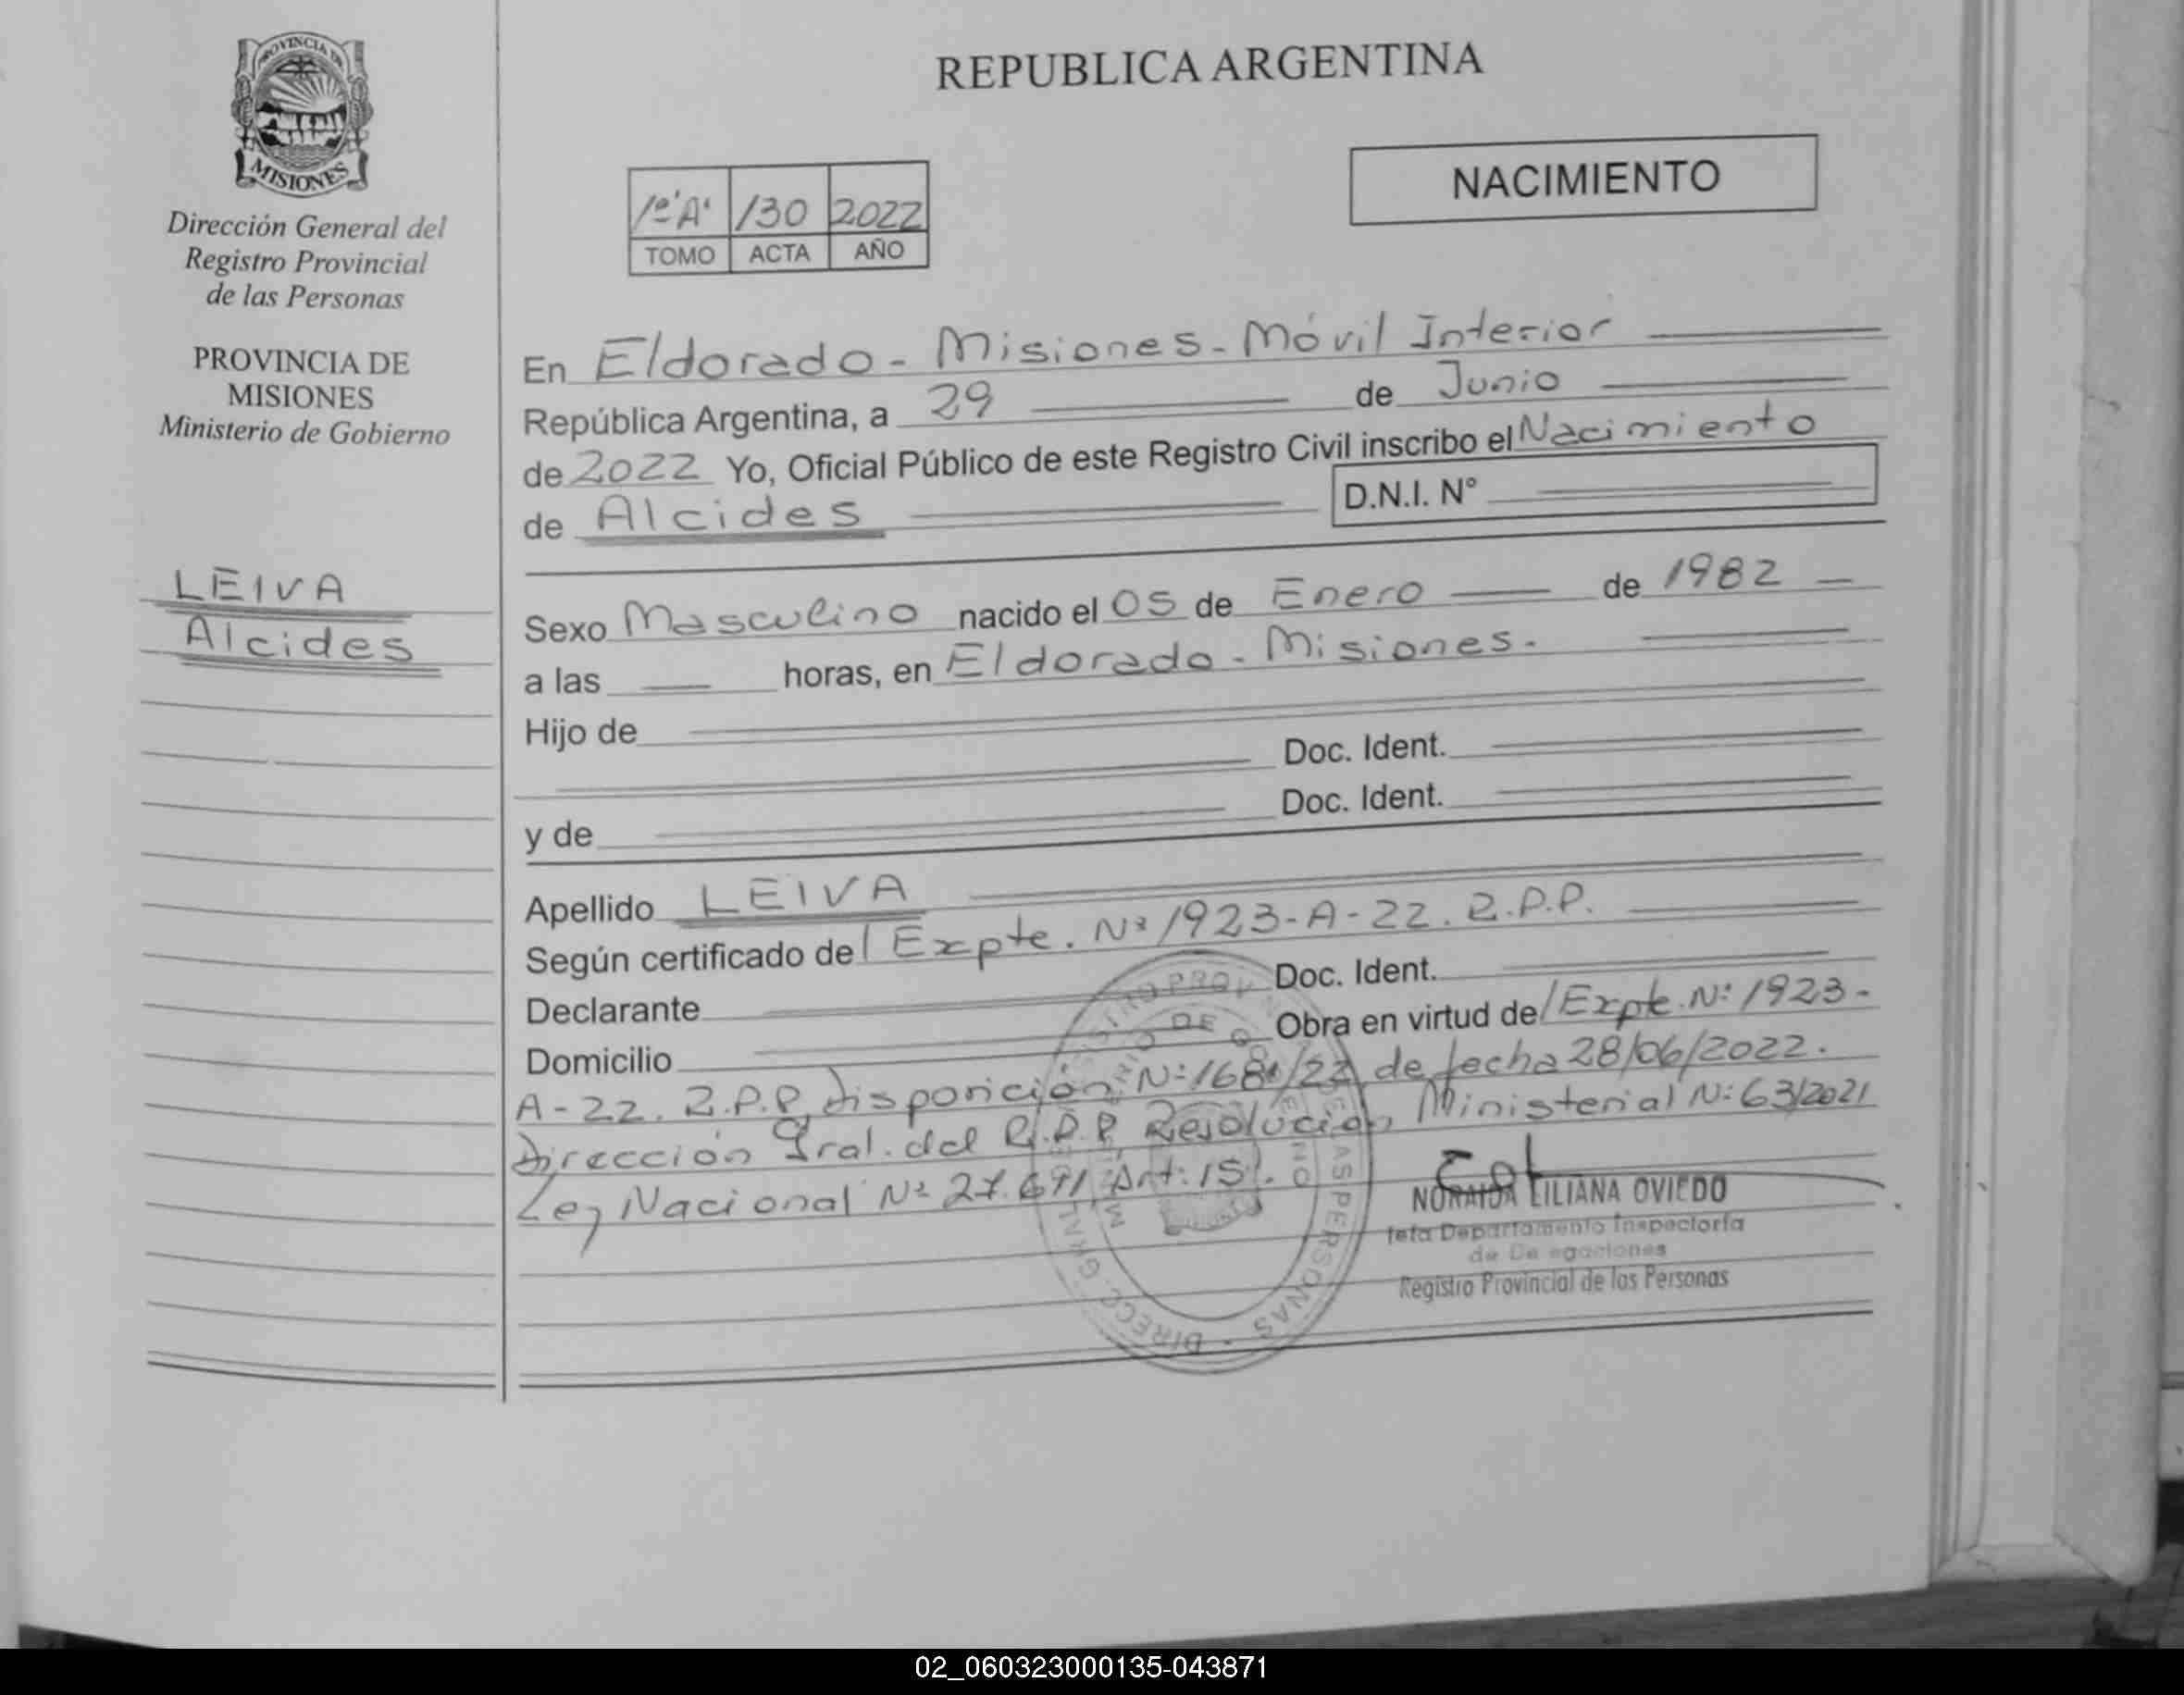 PROVINCIA DE
MISIONES
Dirección General del
Registro Provincial
de las Personas
PROVINCIA DE
MISIONES
Ministerio de Gobierno
LEIVA
Alcides
REPUBLICA ARGENTINA
NACIMIENTO
1º"A" 130 2022
TOMO ACTA AÑO
En Eldorado - Misiones - Móvil Interior
República Argentina, a 29 de Junio
de 2022 Yo, Oficial Público de este Registro Civil inscribo el Nacimiento
de Alcides D.N.I. N°
Sexo Masculino nacido el 05 de Enero de 1982
a las horas, en Eldorado - Misiones.
Hijo de
Doc. Ident.
y de Doc. Ident.
Apellido LEIVA
Según certificado del Expte. Nº 1923-A-22. R.P.P.
Declarante Doc. Ident.
Domicilio Obra en virtud del Expte. Nº 1923-
A-22. R.P.P, Disposición Nº 1681/22 de fecha 28/06/2022.
Dirección Gral. del R.P.P. Resolución Ministerial Nº 63/2021
Ley Nacional Nº 27.611 Art: 15.
NORAIDA LILIANA OVIEDO
Jefa Departamento Inspectoría
de Delegaciones
Registro Provincial de las Personas
02_060323000135-043871